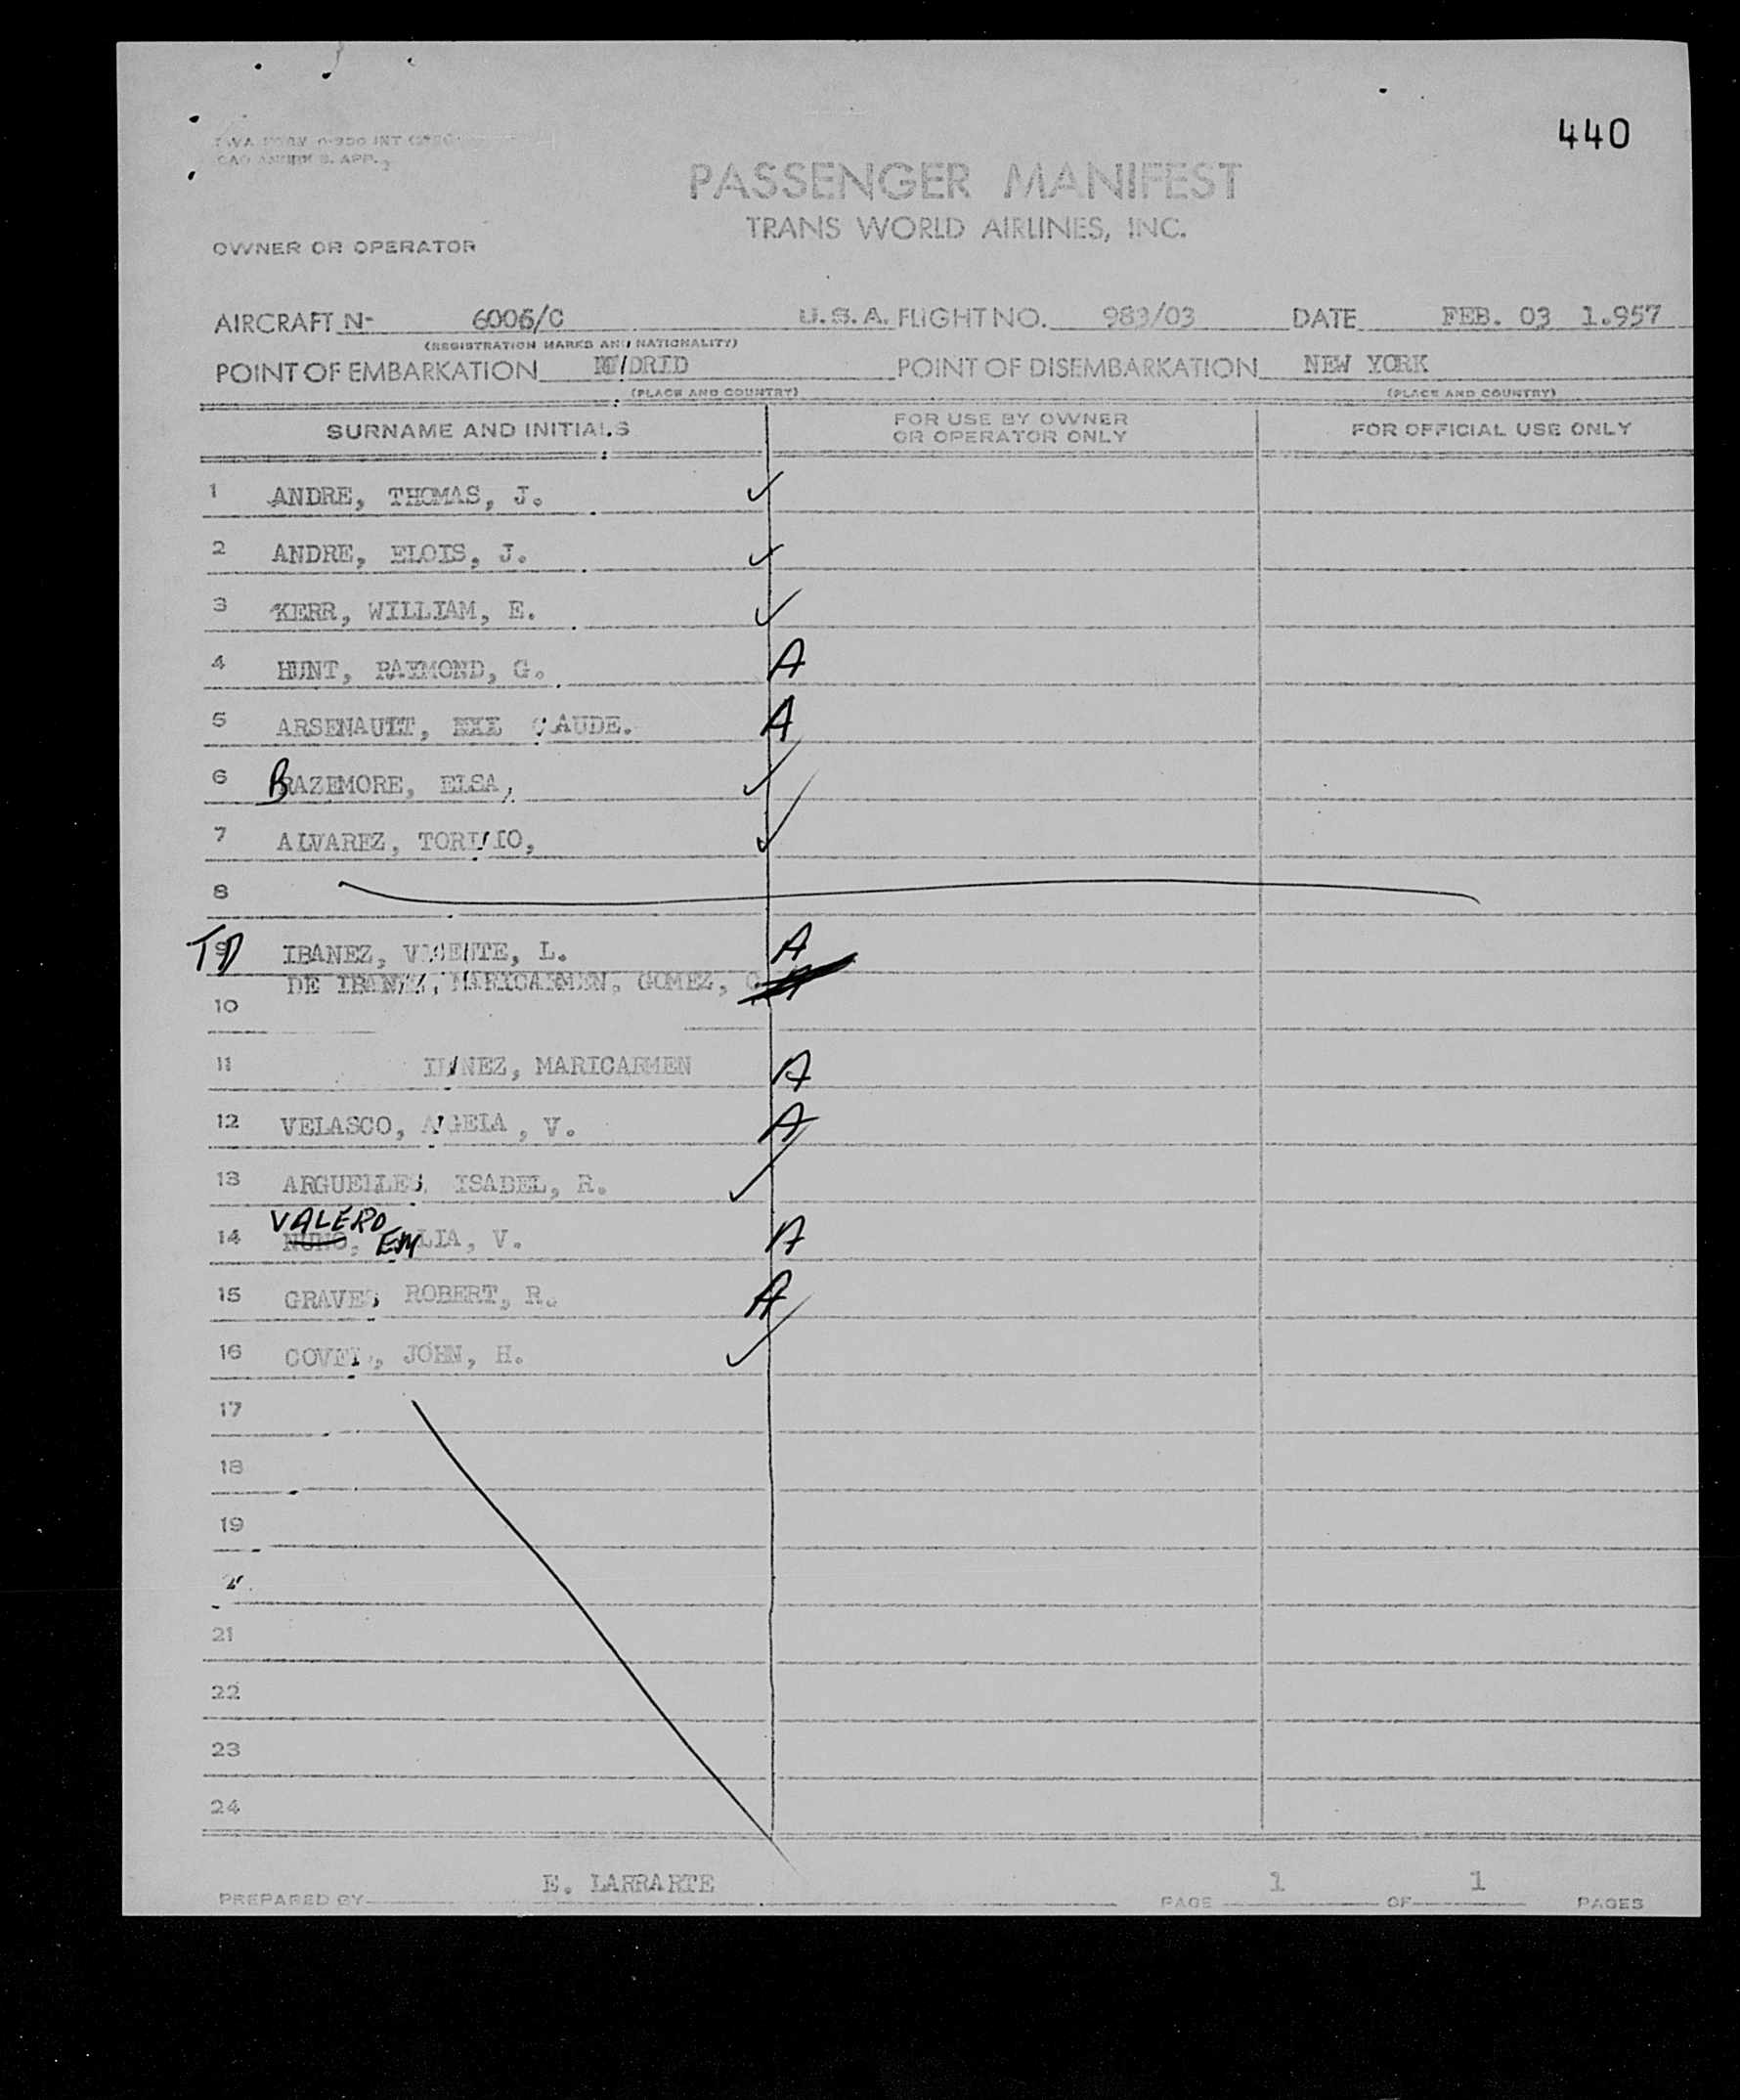 440
PASSENGER MANIFEST
TRANS WORLD AIRLINES, INC.
OWNER OR OPERATOR
AIRCRAFT N- 6006/C U.S.A. FLIGHT NO. 983/03 DATE FEB. 03 1.957
(REGISTRATION MARKS AND NATIONALITY)
POINT OF EMBARKATION POINT OF DISEMBARKATION NEW YORK
(PLACE AND COUNTRY) (PLACE AND COUNTRY)
SURNAME AND INITIALS FOR USE BY OWNER OR OPERATOR ONLY FOR OFFICIAL USE ONLY
1 ANDRE, THOMAS, J. ✓
2 ANDRE, ELOIS, J. ✓
3 KERR, WILLIAM, E. ✓
4 HUNT, RAYMOND, G. A
5 ARSENAULT, CLAUDE. A
6 BAZEMORE, ELSA, ✓
7 ALVAREZ, ✓
8
9 IBANEZ, VICENTE, L. A
DE IBANEZ, MARICARMEN, GOMEZ,
10
11 MARICARMEN A
12 VELASCO, ANGELA, V. A
13 ARGUELLES, ISABEL, R. ✓
VALERO
14 NUNO, EMLIA, V. A
15 GRAVES, ROBERT, R. A
16 JOHN, H. ✓
17
18
19
21
22
23
24
PREPARED BY E. LARRARTE PAGE 1 OF 1 PAGES